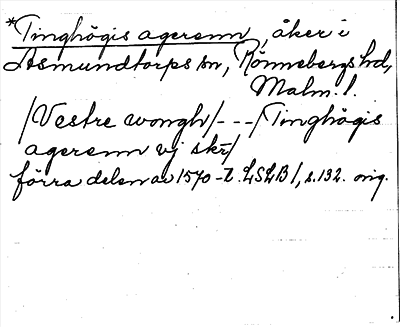 *Tinghögis agerenn, åker i
Asmundtorps sn, Rönnebergs hd,
Malm. l.
/Vestre wongh/---/Tinghögis
agerenn vj skr/
förra delen av 1570-t. LSLB/, s. 132. orig.